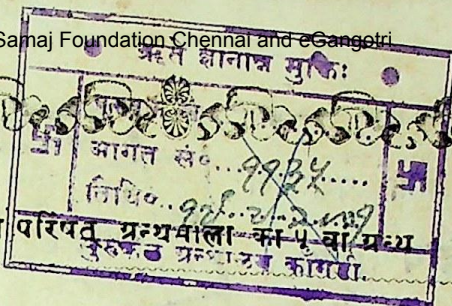 Samaj Foundation Chennai and eGangotri
ऋते ज्ञानान्न मुक्तिः
आगत सं०...११३५....
तिथि०
परिषत् ग्रन्थमाला का ५ वां ग्रन्थ
गुरुकुल ग्रन्थालय काँगड़ी.